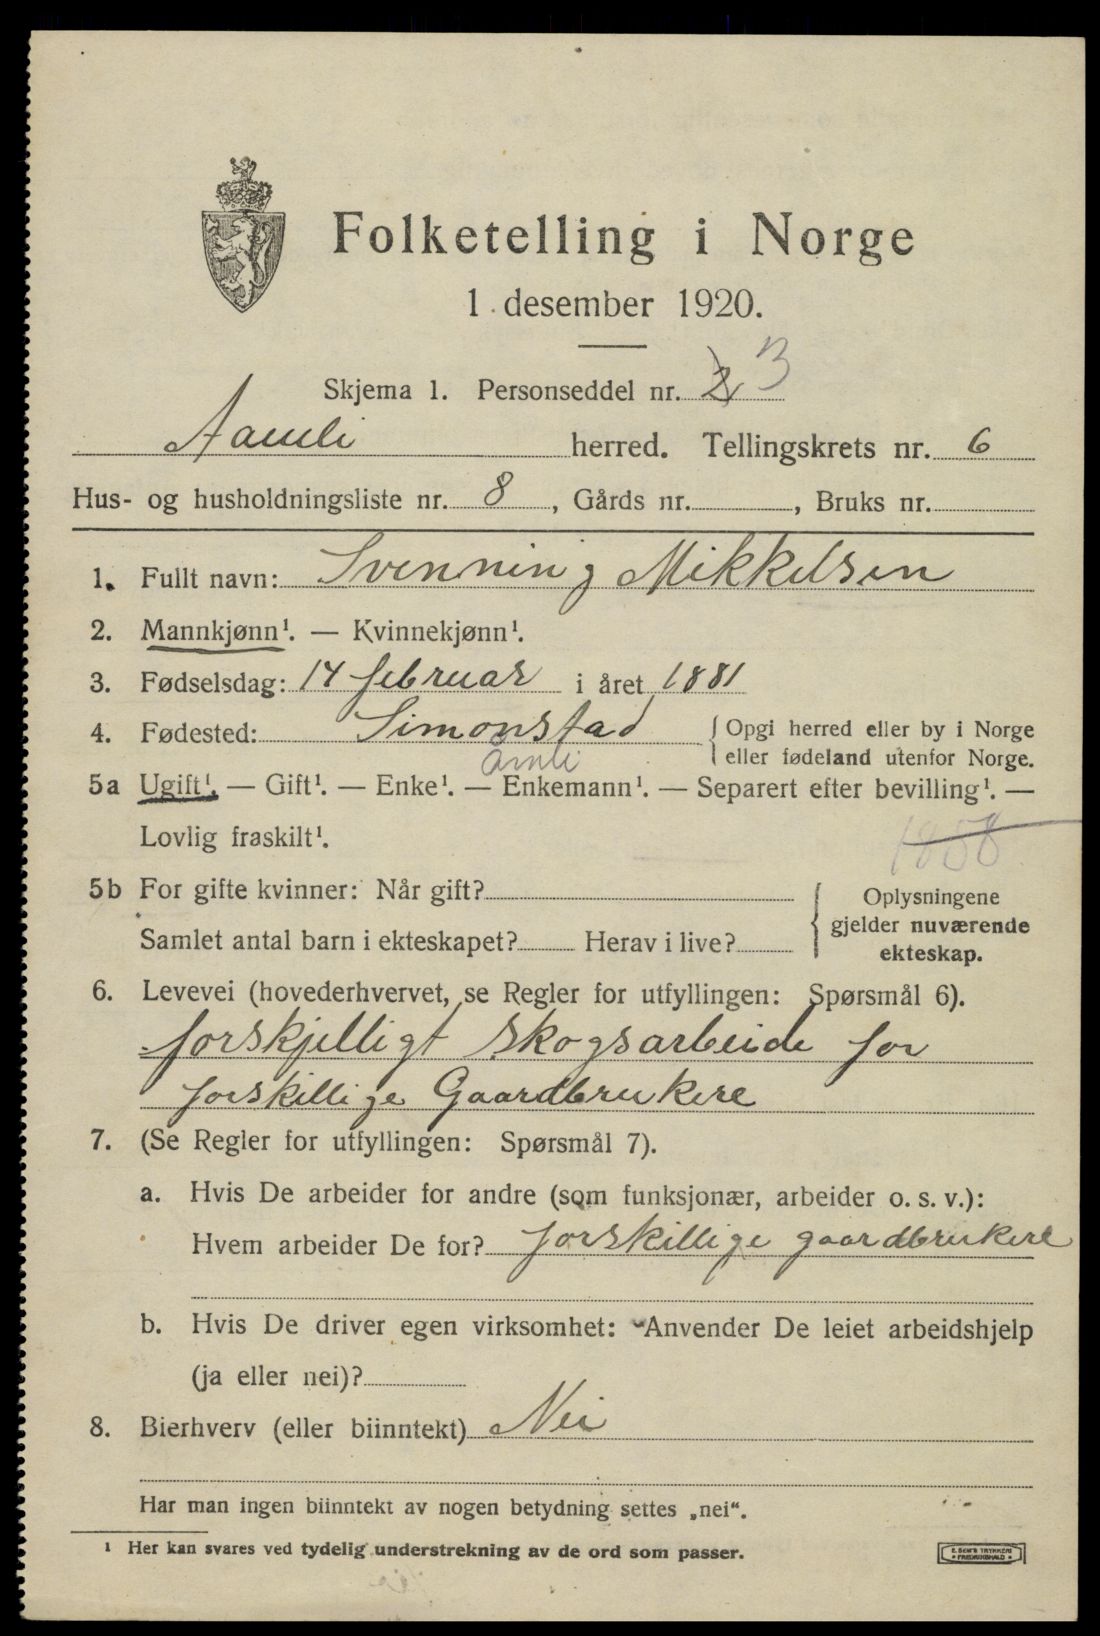 Folketelling i Norge
1 desember 1920.
Skjema 1. Personseddel nr. 2 3
Aamli herred. Tellingskrets nr. 6
Hus- og husholdningsliste nr. 8, Gårds nr. , Bruks nr.
1. Fullt navn: Svenning Mikkelsen
2. Mannkjønn¹. — Kvinnekjønn¹.
3. Fødselsdag: 14 februar i året 1881
4. Fødested: Simonstad { Opgi herred eller by i Norge
Åmli eller fødeland utenfor Norge.
5a Ugift¹. — Gift¹. — Enke¹. — Enkemann¹. — Separert efter bevilling¹. —
Lovlig fraskilt¹. 1858
5b For gifte kvinner: Når gift? { Oplysningene
gjelder nuværende
Samlet antal barn i ekteskapet? Herav i live? ekteskap.
6. Levevei (hovederhvervet, se Regler for utfyllingen: Spørsmål 6).
forskjelligt skogsarbeide for
forskillige Gaardbrukere
7. (Se Regler for utfyllingen: Spørsmål 7).
a. Hvis De arbeider for andre (som funksjonær, arbeider o. s. v.):
Hvem arbeider De for? forskillige gaardbrukere
b. Hvis De driver egen virksomhet: Anvender De leiet arbeidshjelp
(ja eller nei)?
8. Bierhverv (eller biinntekt) Nei
Har man ingen biinntekt av nogen betydning settes „nei“.
¹ Her kan svares ved tydelig understrekning av de ord som passer.